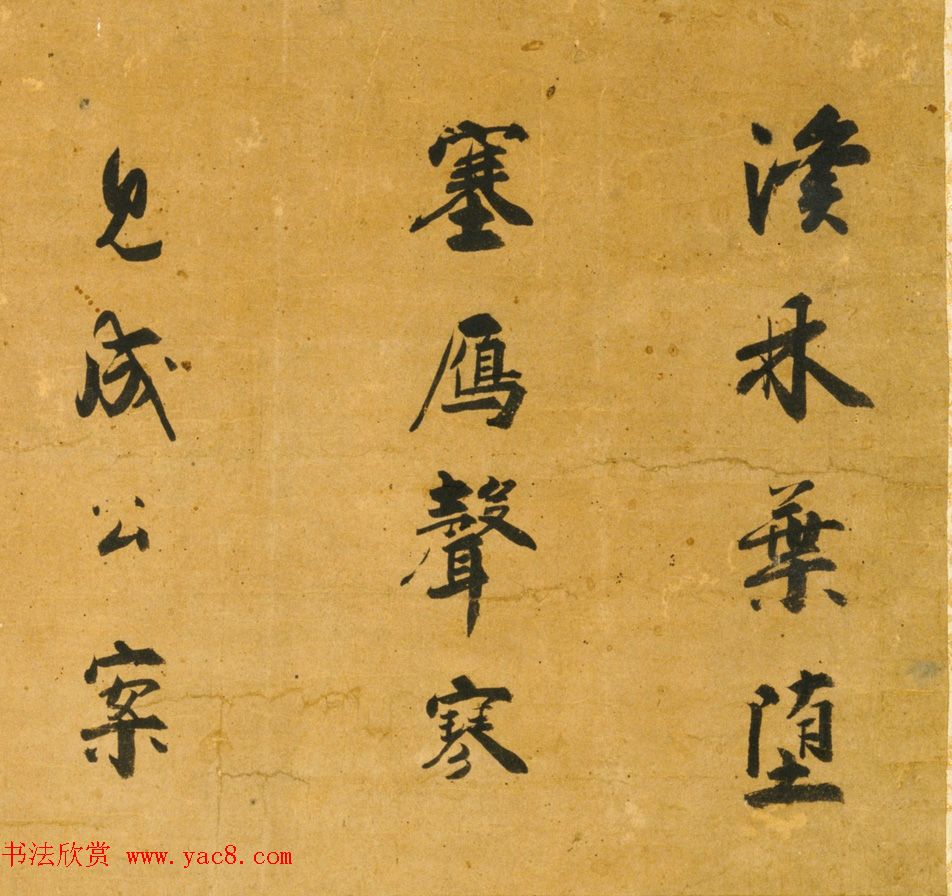 溪林葉堕
塞鴈聲寒
見成公案
书法欣赏 www.yac8.com